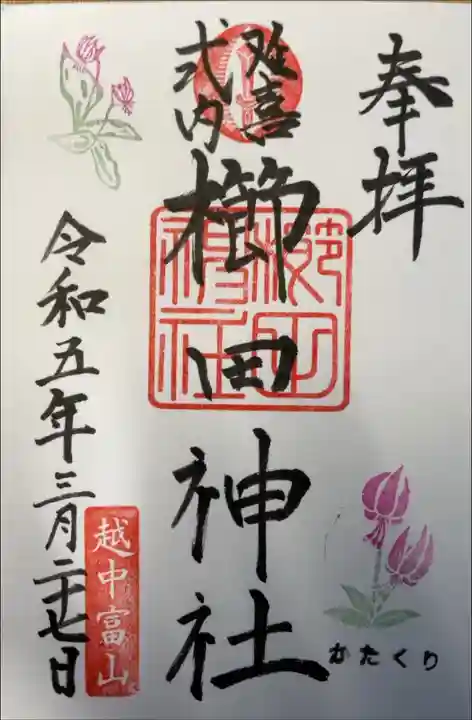 奉拝
延喜
式内
櫛田神社
櫛田
神社
令和五年三月二十七日
越中富山
かたくり